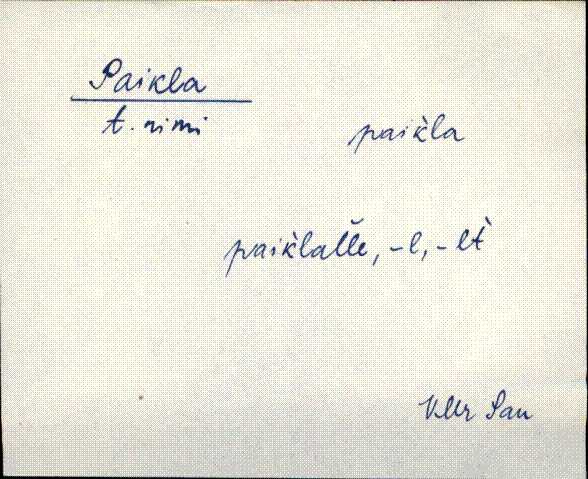 Paikla
t. nimi
paik̀la
paik̀lal̆l̆e, -l, -lt̀
VMr San